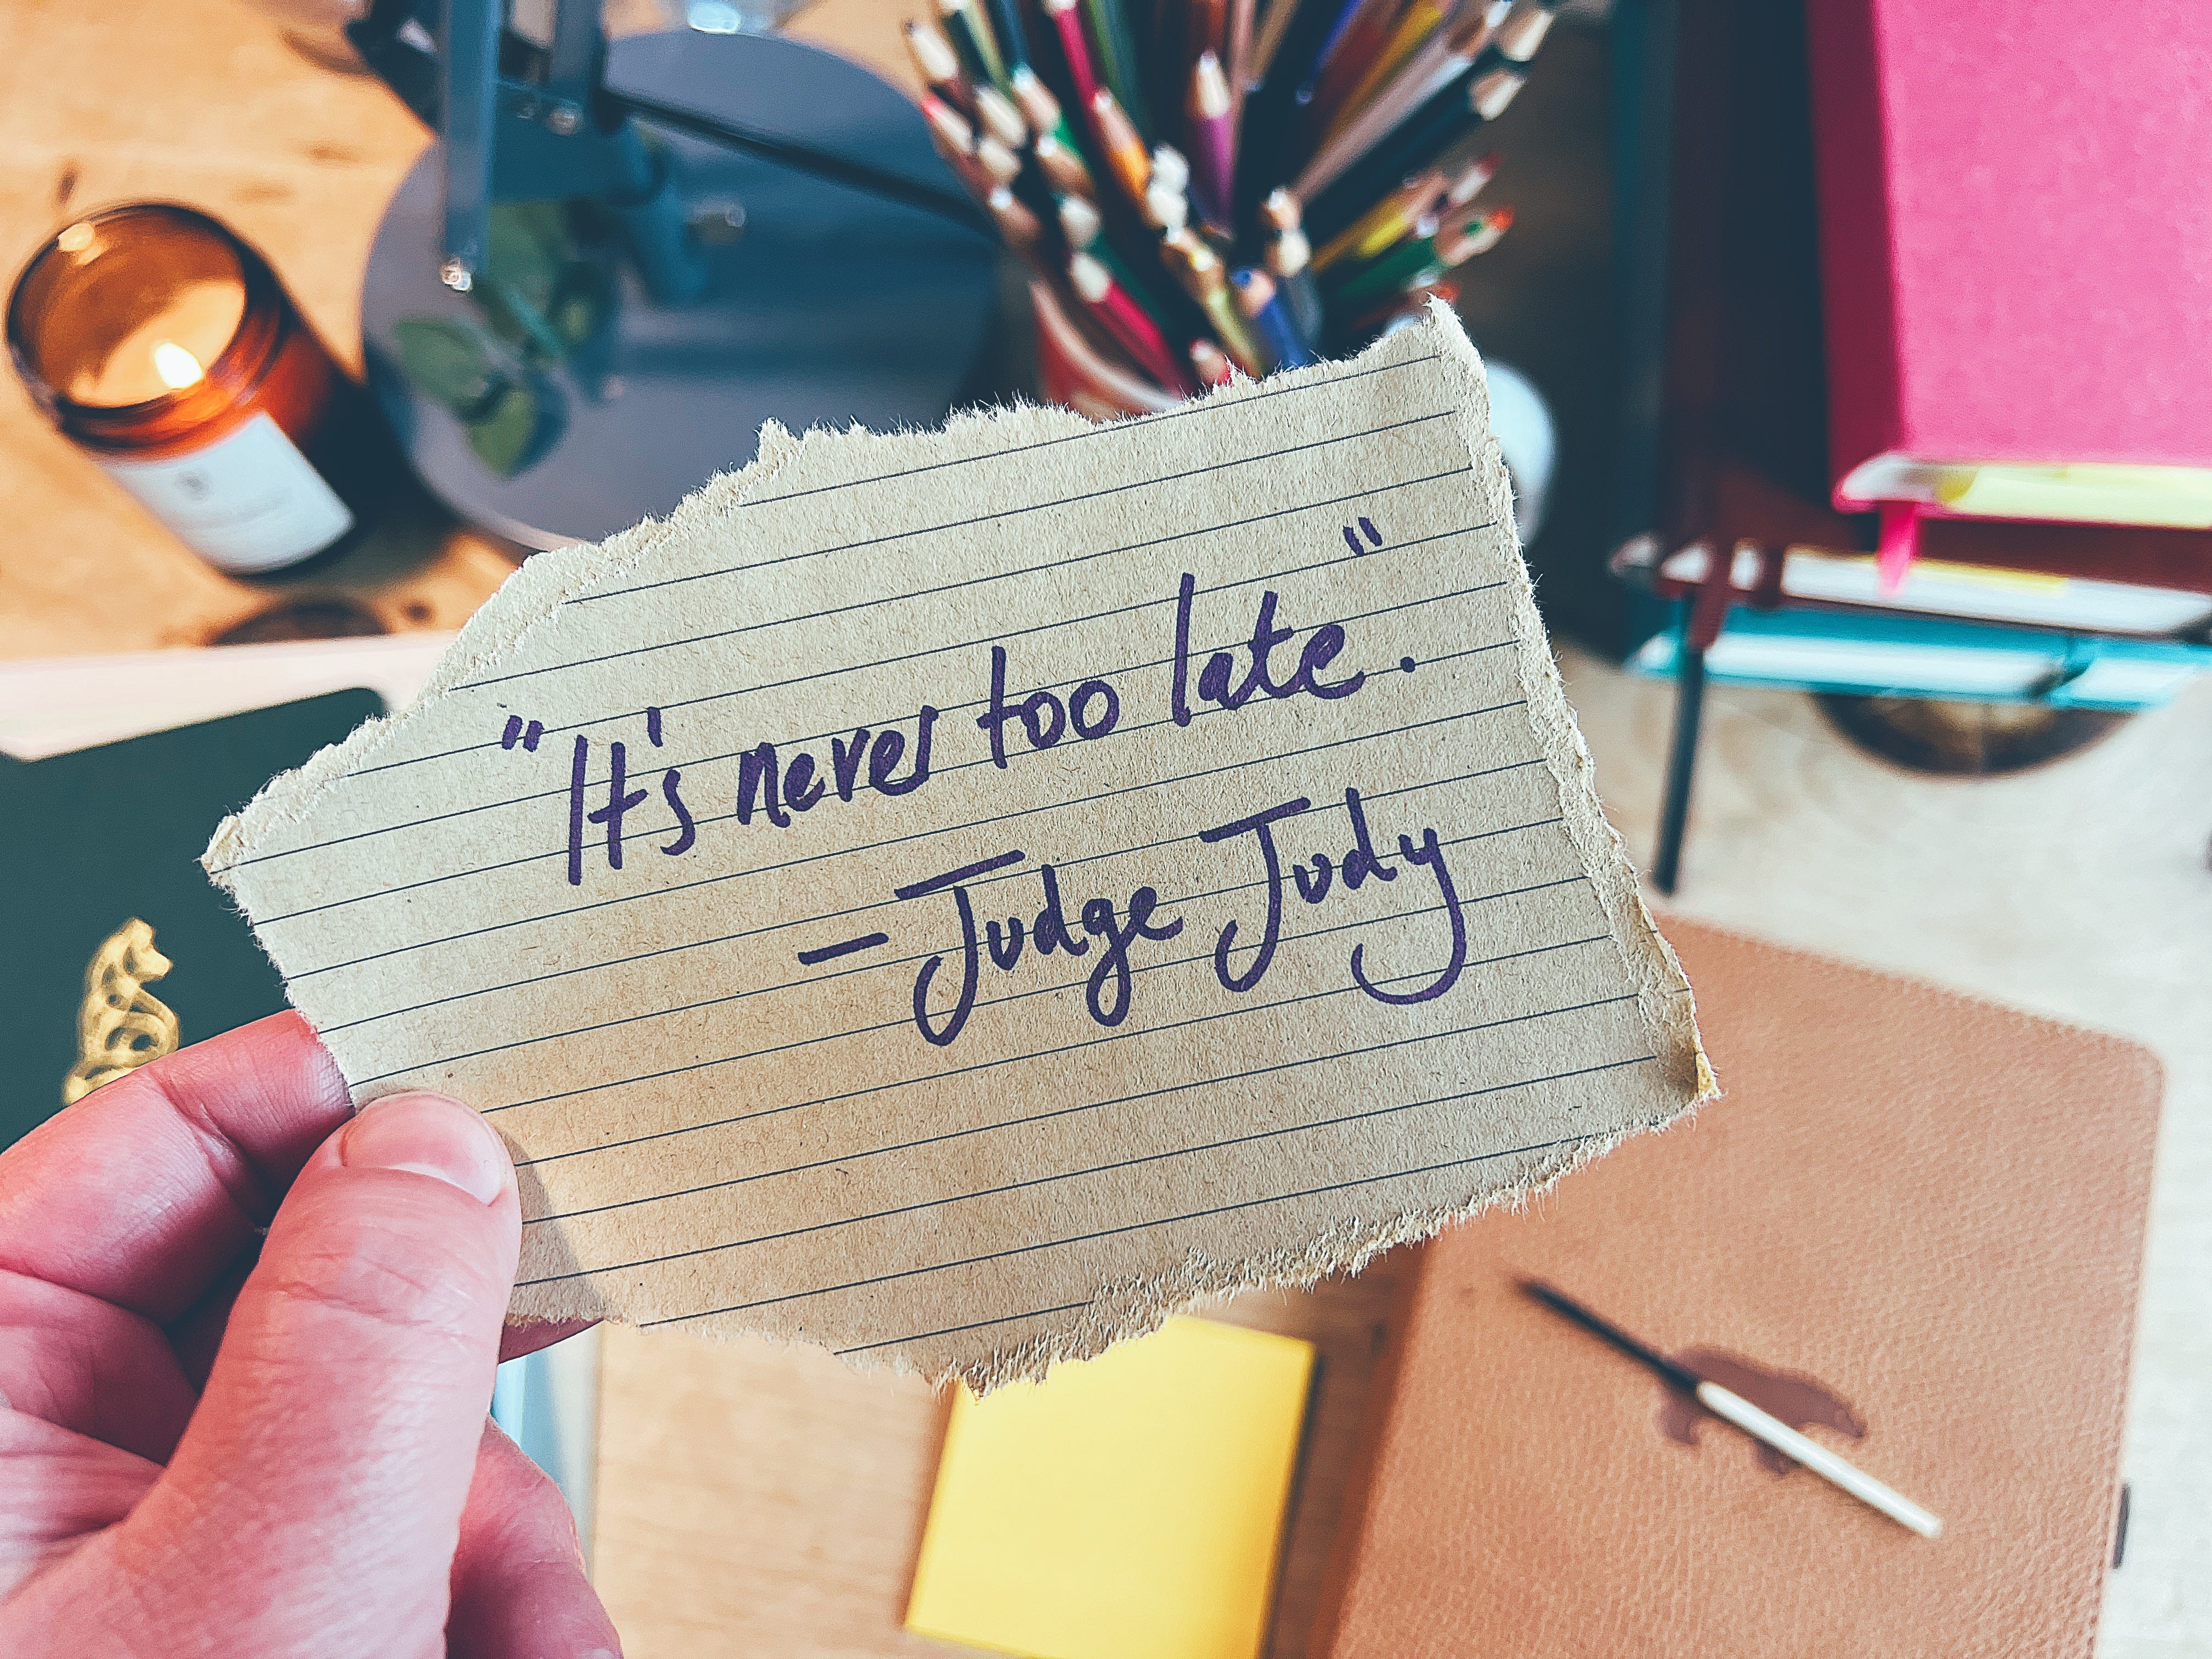 "It's never too late."
- Judge Judy